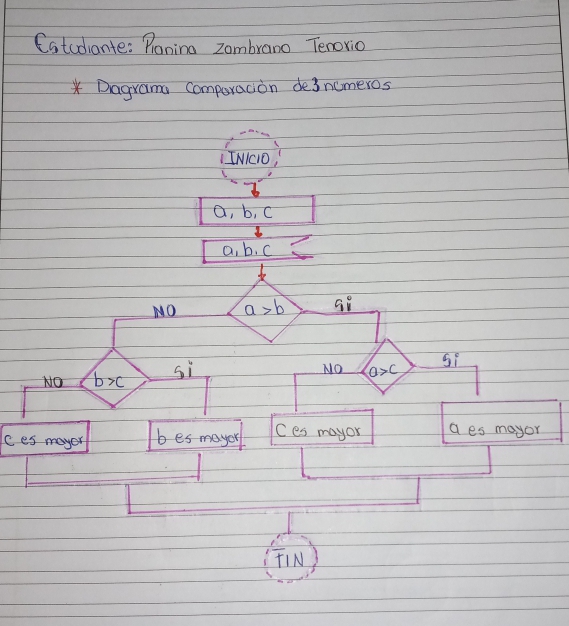 Estudiante: Pianina Zambrano Tenorio
* Diagrama Comparación de 3 números
INICIO
a, b, c
a, b, c
a > b
NO
Si
b > c
NO
Si
a > c
NO
Si
C es mayor
b es mayor
C es mayor
a es mayor
FIN